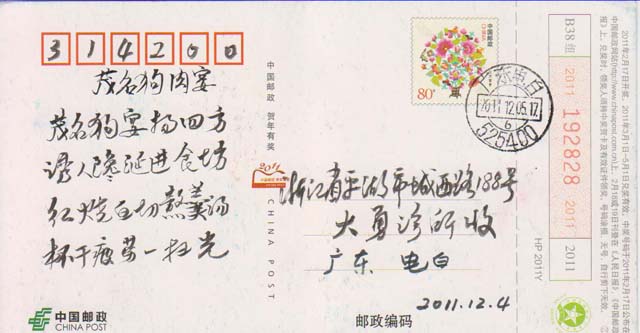 314200
茂名狗肉宴
茂名狗宴扬四方
诱人馋涎进食坊
红烧白切熬羹汤
杯干疲劳一扫光
中国邮政
CHINA POST
中国邮政 贺年有奖
2011
CHINA POST
中国邮政
80分
广东电白
2011.12.05.17
6
525400
浙江省平湖市城西路188号
大勇诊所收
广东 电白
2011.12.4
邮政编码
HP 2011Y
B38 组
2011
192828
2011
2011